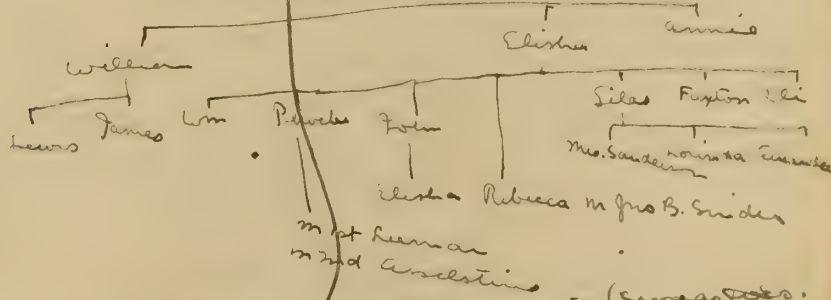 Elisha Annie
William
Lewis James Wm Phoebe John Silas Foxton Eli
Mrs. Sanderson Louisa
Elisha Rebecca m Jno B. Snider
m 1st Leeman
m 2nd Asselstine